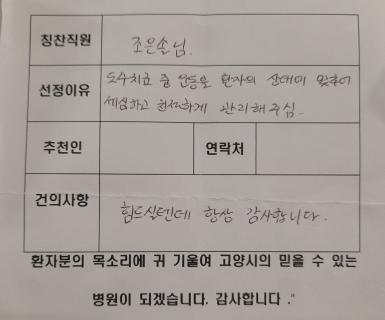 칭찬직원 조은손님.
선정이유 도수치료 중 운동을 환자의 상태에 맞추어
세심하고 친절하게 관리해주심.
추천인 연락처
건의사항 힘드실텐데 항상 감사합니다.
환자분의 목소리에 귀 기울여 고양시의 믿을 수 있는
병원이 되겠습니다. 감사합니다."